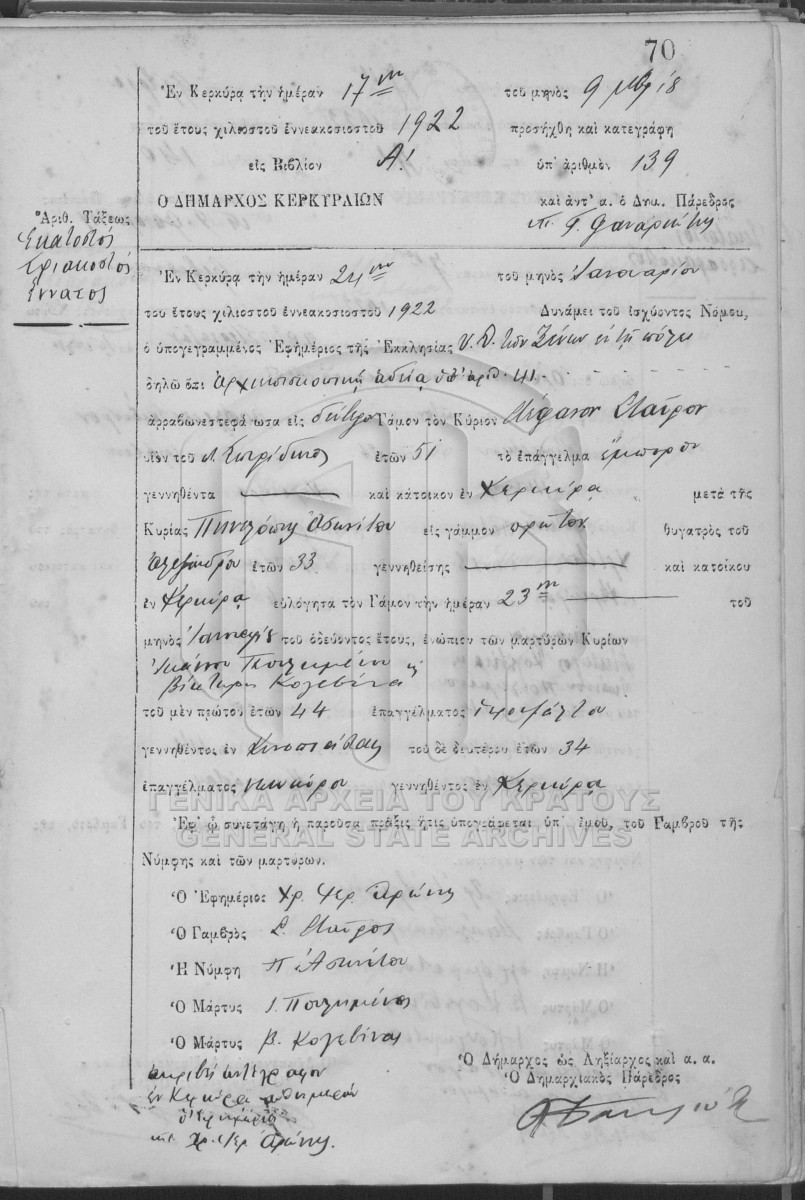 70
Ἐν Κερκύρᾳ τὴν ἡμέραν 17ην τοῦ μηνὸς 9μβρίου
τοῦ ἔτους χιλιοστοῦ ἐννεακοσιοστοῦ 1922 προσήχθη καὶ κατεγράφη
εἰς Βιβλίον Α! ὑπ' ἀριθμὸν 139
Ο ΔΗΜΑΡΧΟΣ ΚΕΡΚΥΡΑΙΩΝ καὶ ἀντ' α. ὁ Δημ. Πάρεδρος
Ἀριθ. Τάξεως
Ἑκατοστός
τριακοστός
ἔννατος
Ἐν Κερκύρᾳ τὴν ἡμέραν 24ην τοῦ μηνὸς Ἰανουαρίου
του ἔτους χιλιοστοῦ ἐννεακοσιοστοῦ 1922 Δυνάμει τοῦ ἰσχύοντος Νόμου,
ὁ ὑπογεγραμμένος Ἐφημέριος τῆς Ἐκκλησίας Υ. Θ. τῶν Ξένων ἐν τῇ πόλει
δηλῶ ὅτι ἀρχιεπισκοπικῇ ἀδείᾳ ὑπ' ἀριθ. 41.
ἀρραβωνεστεφάνωσα εἰς δεύτερον Γάμον τὸν Κύριον Στέφανον Σταῦρον
υἱὸν τοῦ Σπυρίδωνος ἐτῶν 51 τὸ ἐπάγγελμα ἔμπορον
γεννηθέντα — καὶ κάτοικον ἐν Κερκύρᾳ μετὰ τῆς
Κυρίας Πηνελόπης Ἀσωνίτου εἰς γάμμον πρῶτον θυγατρὸς τοῦ
Ἀλεξάνδρου ἐτῶν 33 γεννηθείσης — καὶ κατοίκου
ἐν Κερκύρᾳ εὐλόγησα τὸν Γάμον τὴν ἡμέραν 23ην — τοῦ
μηνὸς Ἰανουαρίου τοῦ ὁδεύοντος ἔτους, ἐνώπιον τῶν μαρτύρων Κυρίων
Ἰωάννου Πουλημένου κ
Βίκτωρος Κολεβίνα
τοῦ μὲν πρώτου ἐτῶν 44 ἐπαγγέλματος ἱεροψάλτου
γεννηθέντος ἐν Κυνοπιάσταις τοῦ δὲ δευτέρου ἐτῶν 34
ἐπαγγέλματος νεωκόρου γεννηθέντος ἐν Κερκύρᾳ
ΓΕΝΙΚΑ ΑΡΧΕΙΑ ΤΟΥ ΚΡΑΤΟΥΣ
Ἐφ' ᾧ συνετάγη ἡ παροῦσα πρᾶξις ἥτις ὑπογράφεται ὑπ' ἐμοῦ, τοῦ Γαμβροῦ τῆς
GENERAL STATE ARCHIVES
Νύμφης καὶ τῶν μαρτύρων.
Ὁ Ἐφημέριος Χρ. Ἱερ. Ἀρώνης
Ὁ Γαμβρὸς Σ. Σταῦρος
Ἡ Νύμφη Π Ἀσωνίτου
Ὁ Μάρτυς Ι. Πουλημένος
Ὁ Μάρτυς Β. Κολεβίνας
Ὁ Δήμαρχος ὡς Ληξίαρχος καὶ α. α.
Ὁ Δημαρχιακὸς Πάρεδρος
ἀκριβὲς ἀντίγραφον
ἐν Κερκύρᾳ αὐθημερόν
ὁ ἐφημέριος
Χρ. Ἱερ. Ἀρώνης.